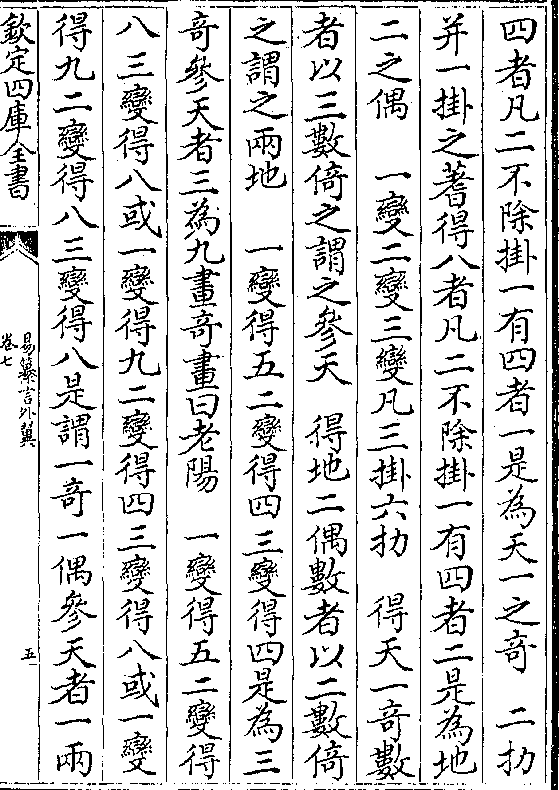 四者凡二不除掛一有四者一是為天一之奇　二扐
并一掛之蓍得八者凡二不除掛一有四者二是為地
二之偶　一變二變三變凡三掛六扐　得天一奇數
者以三數倚之謂之參天　得地二偶數者以二數倚
之謂之兩地　一變得五二變得四三變得四是為三
奇參天者三為九畫奇畫曰老陽　一變得五二變得
八三變得八或一變得九二變得四三變得八或一變
得九二變得八三變得八是謂一奇一偶參天者一兩
欽定四庫全書
易纂言外翼
卷七
五